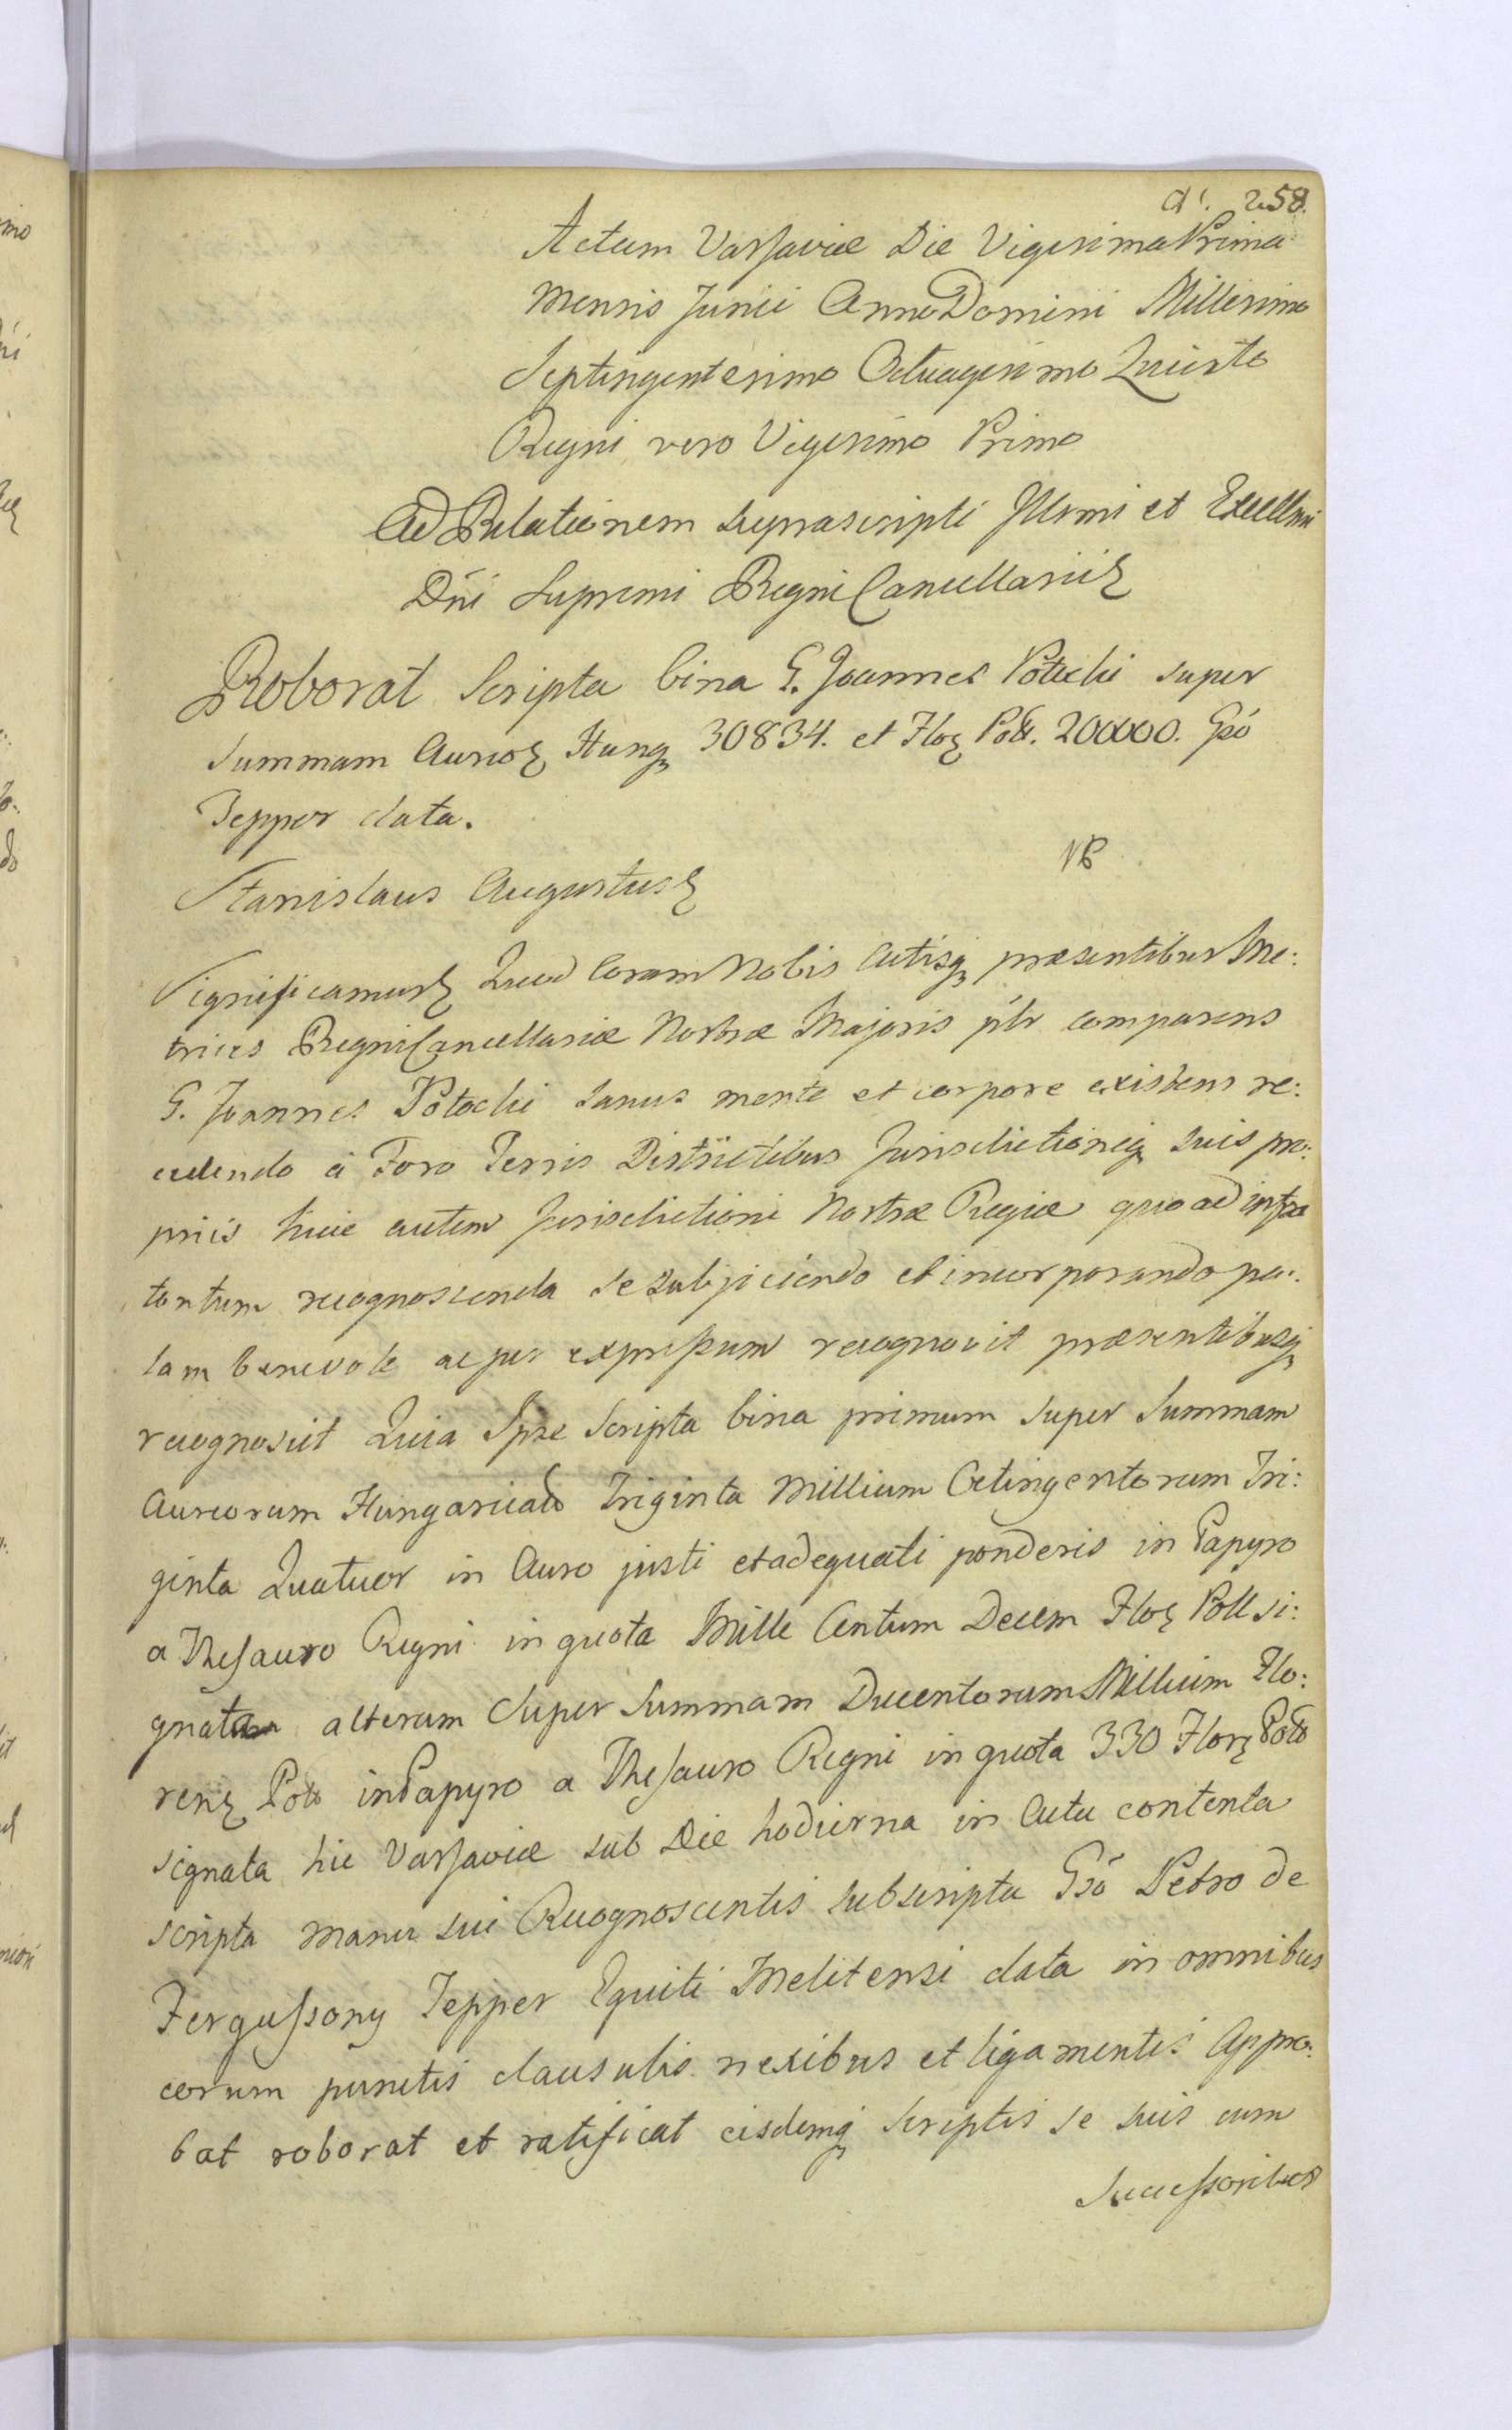 258.
Actum Varsaviæ Die Vigesima Prima
Mensis Junii Anno Domini Millesimo
Septingentesimo Octuagesimo Quinto
Regni vero Vigesimo Primo
Ad Relationem suprascripti Illsmi et Excellmi
Dńi Supremi Regni Cancellarii
Roborat Scripta bina G. Joannes Potocki super
Summam Aureoꝝ Hung. 30834. et Floꝝ Poll. 200000. Gsó
Tepper data.
Stanislaus Augustus
Significamus Quod Coram Nobis Actisqꝫ præsentibus Me:
trices Regni Cancellariæ Nostræ Majoris płr comparens
G. Joannes Potocki sanus mente et corpore existens re:
cedendo à Foro Terris Districtibus Jurisdictioneqꝫ suis pro:
priis huic autem Jurisdictioni Nostræ Regiæ quo ad infra
tantum recognoscenda se subjiciendo et incorporando pa:
lam benevole ac per expressum recognovit præsentibusqꝫ
recognoscit Quia Ipse Scripta bina primum super Summam
Aureorum Hungaricał Triginta Millium Octingentorum Tri:
ginta Quatuor in Auro justi et adequati ponderis in Papyro
a Thesauro Regni in quota Mille Centum Decem Floꝝ Poll si:
gnatam alterum Super Summam Ducentorum Millium Flo:
renꝝ Poll in Papyro a Thesauro Regni in quota 330 Florꝝ Poll
signata hic Varsaviæ sub Die hodierna in Actu contenta
scripta manu sui Recognoscentis subscripta Gsó Petro de
Fergussony Tepper Equiti Melitensi data in omnibus
eorum punctis clausulis nexibus et ligamentis Appro:
bat roborat et ratificat eisdemqꝫ scriptis se suis cum
Successoribus